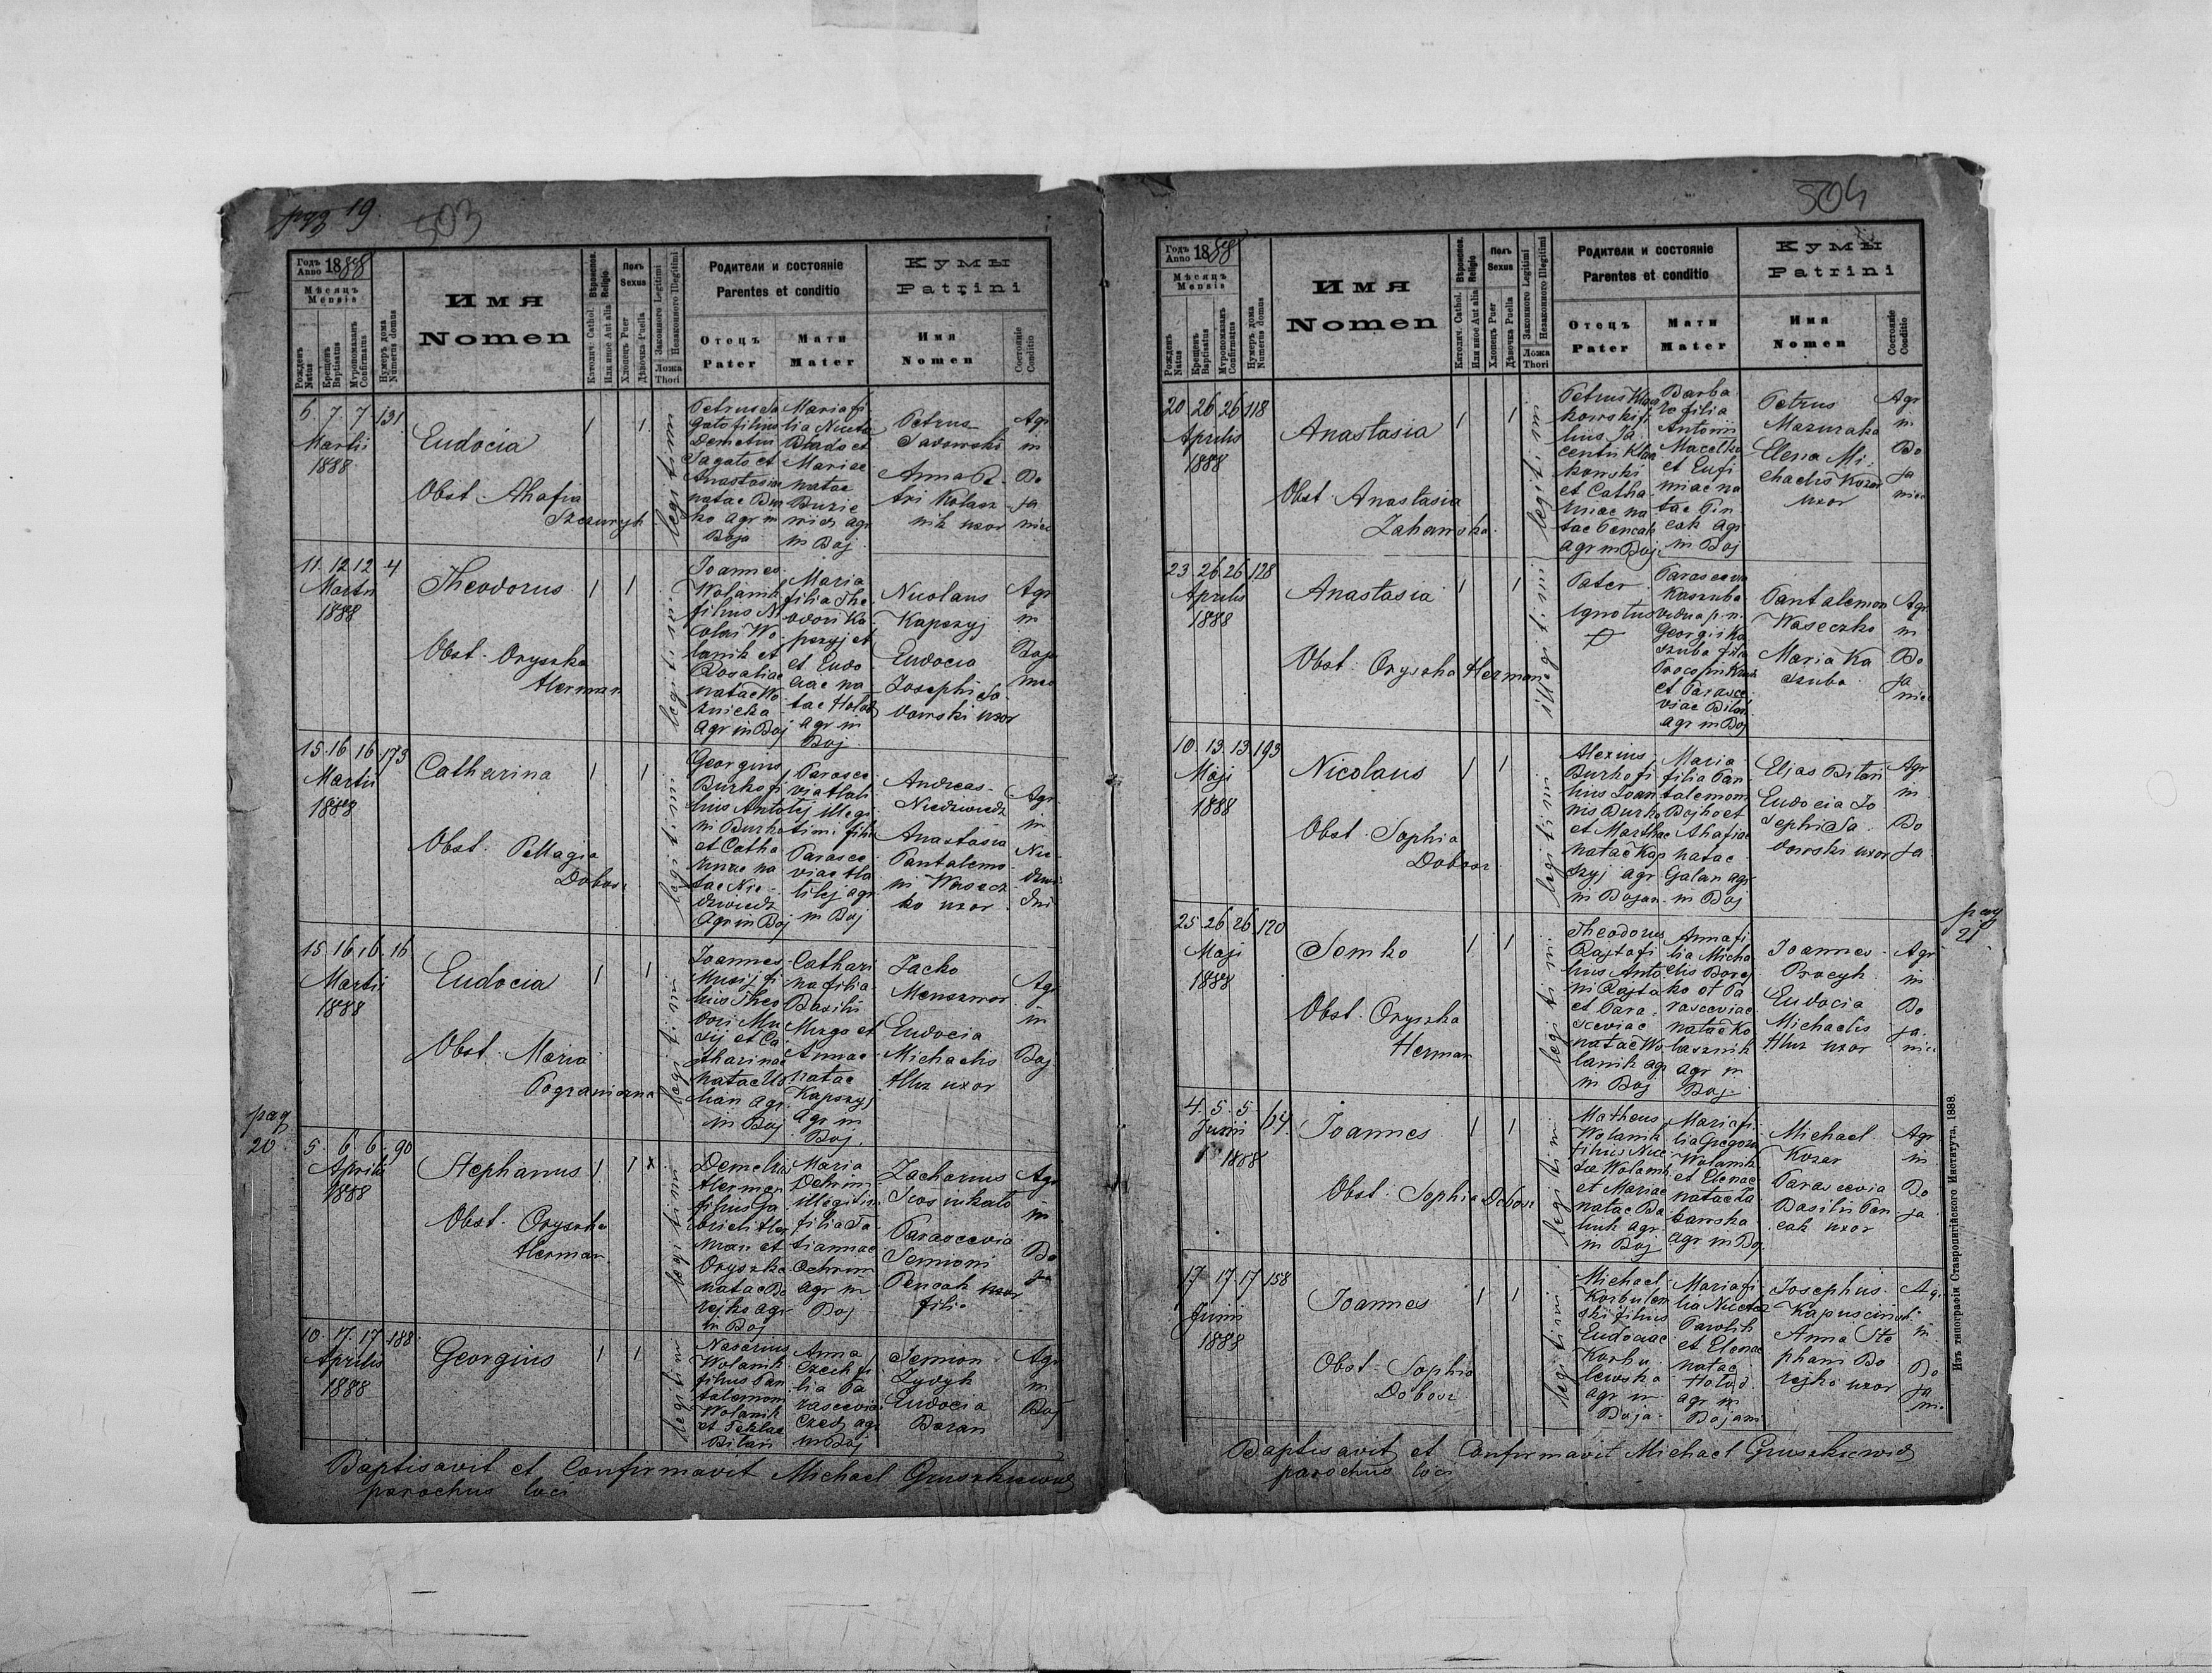 pag 19.
503
Годъ
Anno 1888
Мѣсяцъ
Mensis
Рожденъ
Natus
Крещенъ
Baptisatus
Муропомазанъ
Confirmatus
Нумеръ дома
Numerus domus
Имя
Nomen
Вѣроиспов.
Religio
Католич. Cathol.
Или иное Aut alia
Полъ
Sexus
Хлопецъ Puer
Дѣвочка Puella
Законного Legitimi
Незаконного Illegitimi
Ложа
Thori
Родители и состояніе
Parentes et conditio
Отецъ
Pater
Мати
Mater
Кумы
Patrini
Имя
Nomen
Состояніе
Conditio
6 7 7 131
Martii
1888
Eudocia
Obst. Ahafia
Szczuryk
legitimi
Demetrii
Sagato et
Anastasiae
natae
ko agr in
Boja
Maria fi
lia Niceta
Mariae
natae
agr
in Boj
Petrus
Sadowski
Anna
uxor
Agr
in
Bo
ja
nice
11 12 12 4
Martii
1888
Theodorus
Obst. Oryszka
Herman
legitimi
Joannes
Wolanik
filius Ni
colai Wo
lanik et
Rosaliae
natae
agr in Boj
Maria
filia The
odori Ka
pszyj et
et Eudo
ciae na
tae
agr in
Boj
Nicolaus
Kapszyj
Eudocia
Josephi Sa
dowski uxor
Agr
in
Boja
nice
15 16 16 173
Martii
1888
Catharina
Obst. Pellagia
Dobosz
legitimi
Georgius
Burko fi
lius Anto
ni Burko
et Catha
rinae na
tae Nie
dzwiedz
Agr in Boj
Parasce
via
illegi
tim. filia
Parasce
viae
agr
in Boj
Andreas
Niedzwiedz
Anastasia
Pantalemo
ni Wasecz
ko uxor
Agr
in
Nie
dzwi
dni
15 16 16 16
Martii
1888
Eudocia
Obst. Maria
Pograniczna
legitimi
Joannes
Musij fi
lius Theo
dori Mu
sij et Ca
tharinae
natae
agr
in Boj
Cathari
na filia
Basilii
et
Annae
natae
Kapszyj
agr in
Boj
Jacko
Eudocia
Michaelis
Hluz uxor
Agr
in
Boj
pag
20
5 6 6 90
Aprilis
1888
Stephanus
Obst. Oryszka
Herman
legitimi
Demetrius
Herman
filius Ga
brieli Her
man et
Oryszka
natae Bo
rejko agr
in Boj
Maria
Ochrim
illegitim
filia Ta
tiannae
Ochrim
agr in
Boj
Zacharius
Parascevia
Semioni
Pencak uxor
filia
Agr
in
Bo
ja
10 17 17 188
Aprilis
1888
Georgius
legitimi
Nazarius
Wolanik
filius Pan
talemon
Wolanik
et Teklae
Bilan
Anna
Czech fi
lia Pa
rascevia
Czech agr
in Boj
Semion
Eudocia
Baran
Agr
in
Boj
Baptisavit et Confirmavit Michael Gruszkiewicz
parochus loci
504
Годъ
Anno 1888
Мѣсяцъ
Mensis
Рожденъ
Natus
Крещенъ
Baptisatus
Муропомазанъ
Confirmatus
Нумеръ дома
Numerus domus
Имя
Nomen
Вѣроиспов.
Religio
Католич. Cathol.
Или иное Aut alia
Полъ
Sexus
Хлопецъ Puer
Дѣвочка Puella
Законного Legitimi
Незаконного Illegitimi
Ложа
Thori
Родители и состояніе
Parentes et conditio
Отецъ
Pater
Мати
Mater
Кумы
Patrini
Имя
Nomen
Состояніе
Conditio
20 26 26 118
Aprilis
1888
Anastasia
Obst. Anastasia
Zahanska
legitimi
kowski
et Catha
rinae na
tae Pencak
agr in Boj
Barba
ra filia
Antonii
et Eufi
miae na
tae Pen
cak agr
in Boj
Petrus
Mazurak
Elena Mi
chaelis Kozar
uxor
Agr
in
Bo
ja
nice
23 26 26 128
Aprilis
1888
Anastasia
Obst. Oryszka Herman
illegitimi
Pater
ignotus
Parascevia
Kaszuba
vidua p. n.
Georgii Ka
szuba filia
Procopii
et Parasce
viae Bilan
agr in Boj
Pantalemon
Waseczko
Maria Ka
szuba
Agr
in
Bo
ja
nice
10 13 13 193
Maji
1888
Nicolaus
Obst. Sophia
Dobosz
legitimi
Alexius
Burko fi
lius Joan
nis Burko
et Marthae
natae Kap
szyj agr
in Bojan
Maria
filia Pan
talemoni
Bojko et
Ahafiae
natae
Galan agr
in Boj
Elias Bilan
Eudocia Jo
sephi Sa
dowski uxor
Agr
in
Bo
ja
pag
21
25 26 26 120
Maji
1888
Semko
Obst. Oryszka
Herman
legitimi
Theodorus
Rajta fi
lius Anto
ni Rajta
et Para
sceviae
natae Wo
lanik agr
in Boj
Anna fi
lia Micha
elis Borej
ko et Pa
rasceviae
natae Ko
lasznik
agr in
Boj
Joannes
Procyk
Eudocia
Michaelis
Hluz uxor
Agr
in
Bo
ja
nice
4 5 5 64
Junii
1888
Joannes
Obst. Sophia Dobosz
legitimi
Matheus
Wolanik
filius Nice
tae Wolanik
et Mariae
natae
agr
in Boj
Maria fi
lia Gregorii
Wolanik
et Elenae
natae
agr in Boj
Michael
Kozar
Parascevia
Basilii Pen
cak uxor
Agr
in
Bo
ja
17 17 17 158
Junii
1888
Joannes
Obst. Sophia
Dobosz
legitimi
Michael
Korbulew
ski filius
Eudociae
Korbu
lewska
agr in
Boja
Maria fi
lia Nicetae
Pawlik
et Elenae
natae
agr in
Bojani
Josephus
Kapuscinski
Anna Ste
phani Bo
rejko uxor
Ag
in
Bo
ja
ni
Baptisavit et Confirmavit Michael Gruszkiewicz
parochus loci
Изъ типографіи Ставропигійского Института, 1888.